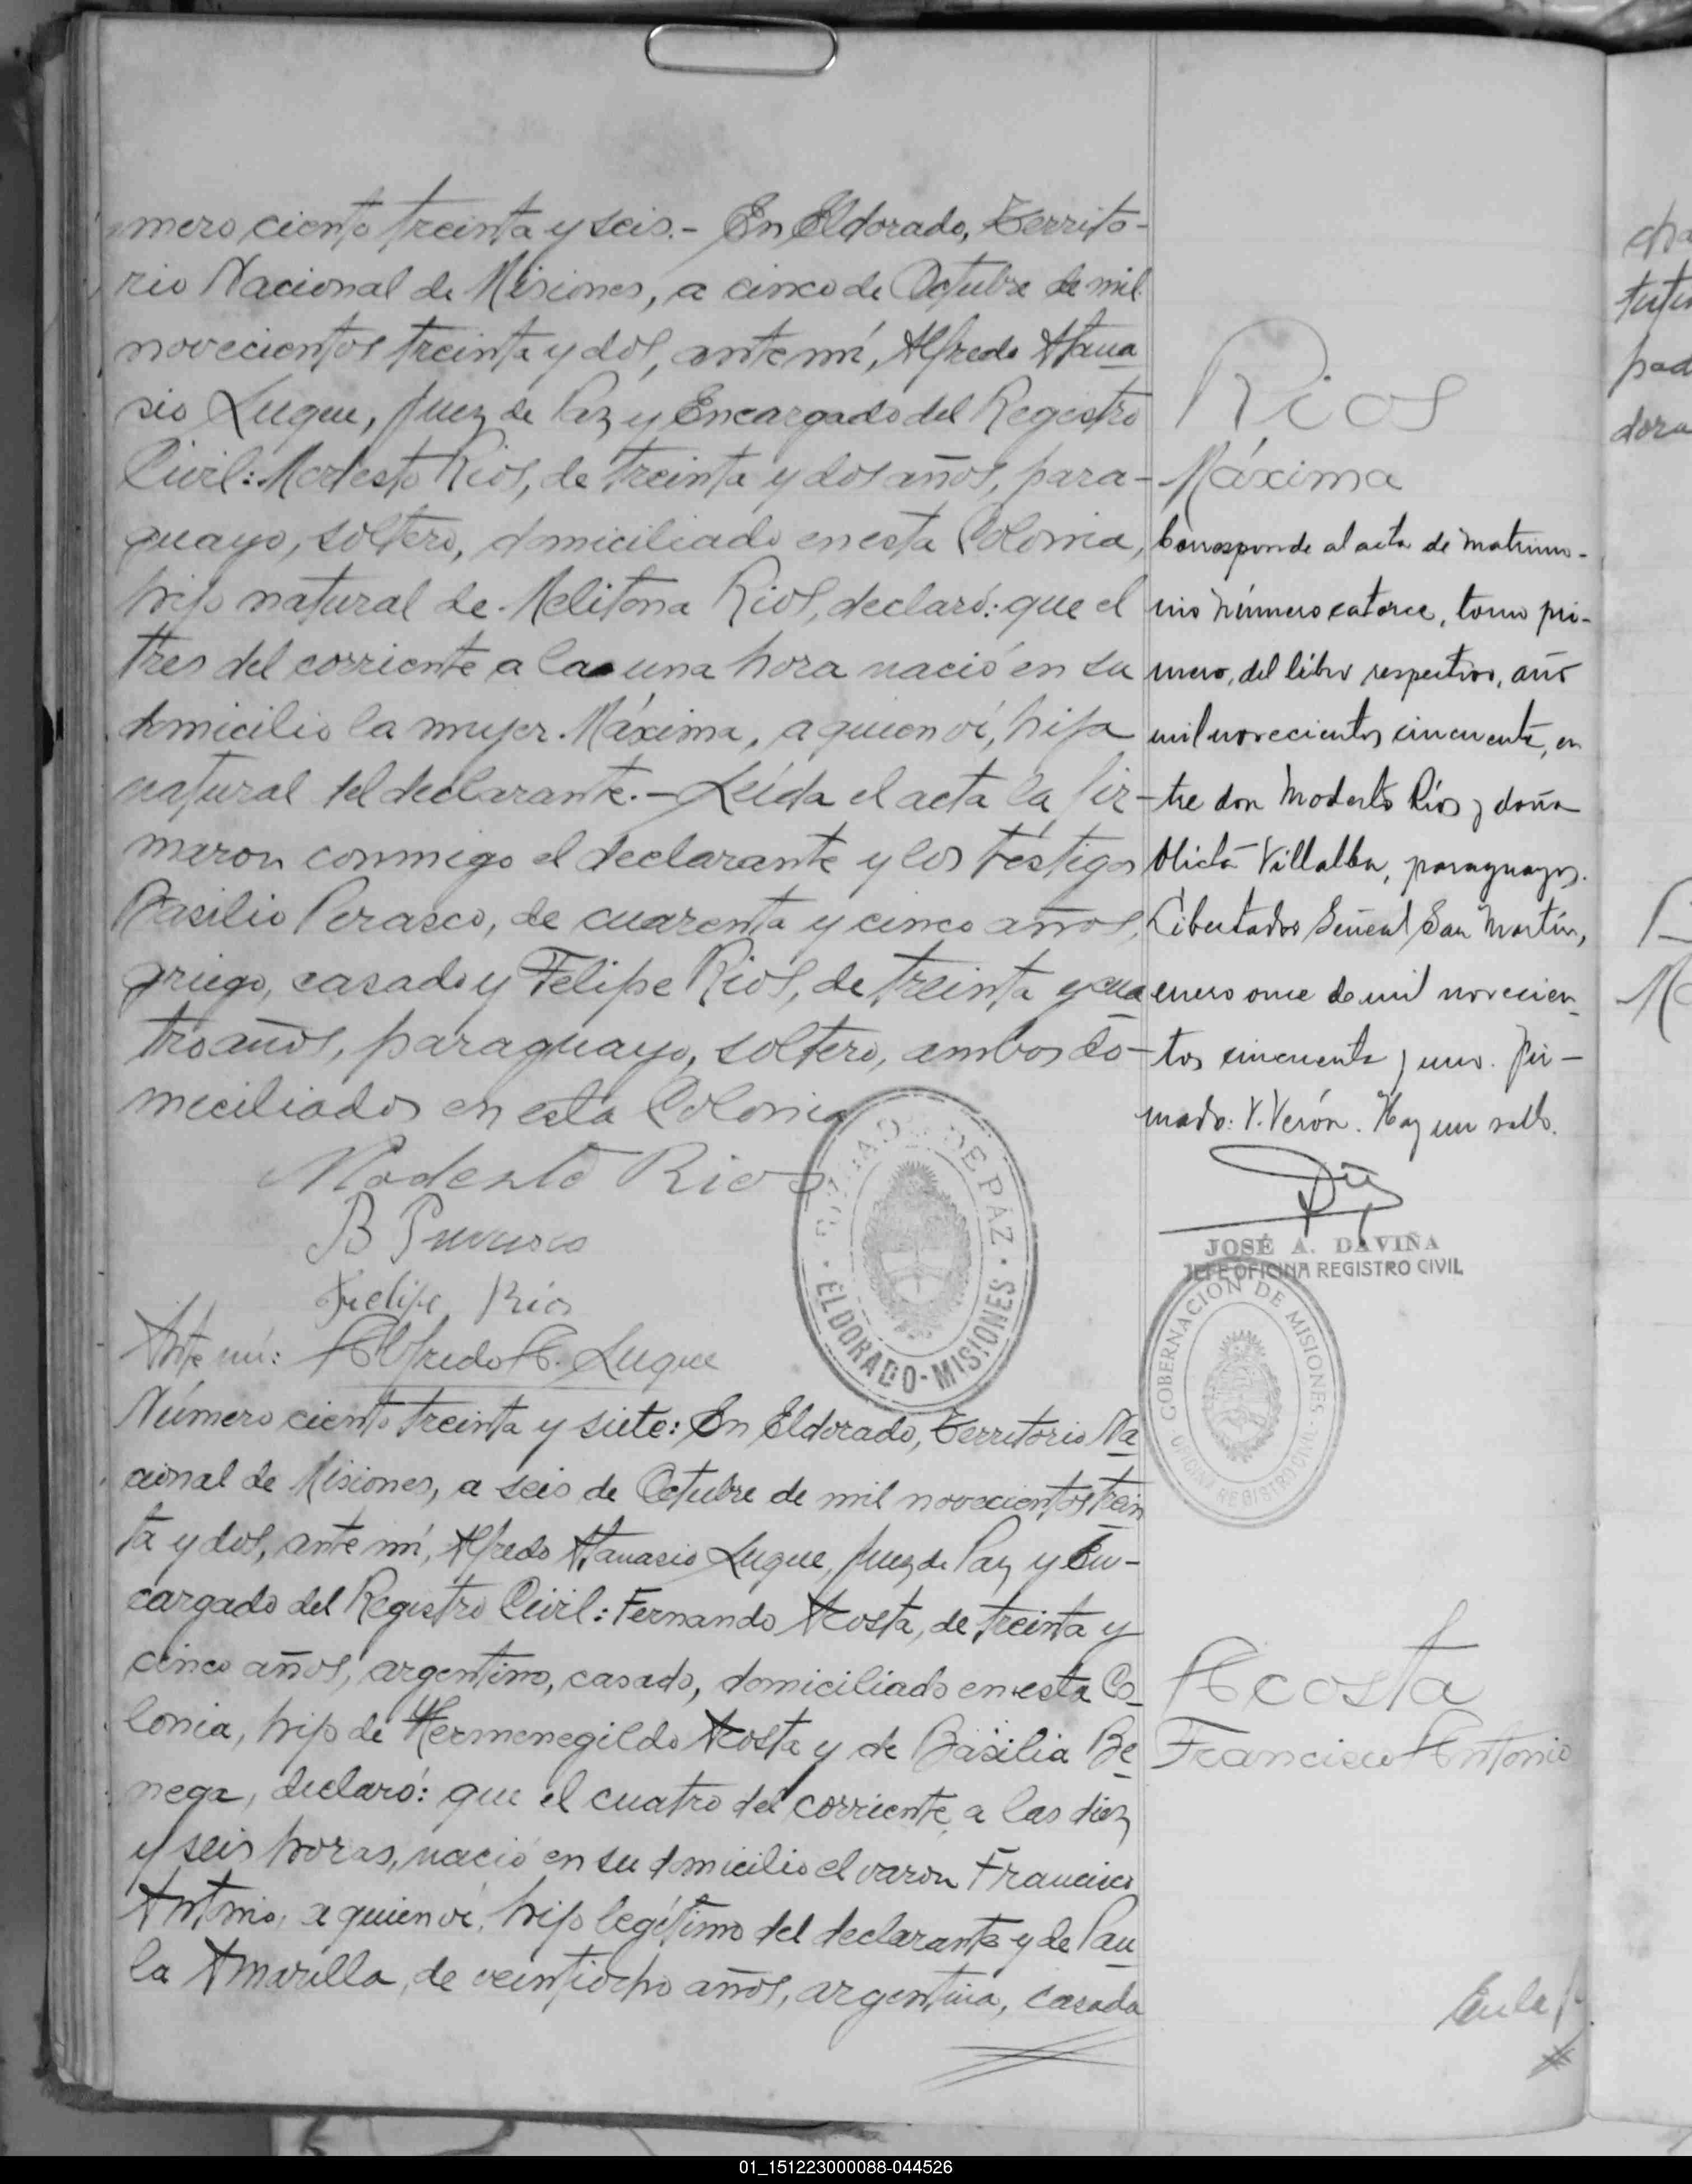 mero ciento treinta y seis.- En Eldorado, Territo-
rio Nacional de Misiones, a cinco de Octubre de mil
novecientos treinta y dos, ante mí, Alfredo Atana
sio Luque, Juez de Paz y Encargado del Registro
Civil: Modesto Rios, de treinta y dos años, para-
guayo, soltero, domiciliado en esta Colonia,
hijo natural de Melitona Rios, declaró: que el
tres del corriente a la una hora nació en su
domicilio la mujer Máxima, a quien ví, hija
natural del declarante.- Leída el acta la fir-
maron conmigo el declarante y los testigos
Basilio Perasco, de cuarenta y cinco años,
griego, casado y Felipe Rios, de treinta y cua
tro años, paraguayo, soltero, ambos do-
miciliados en esta Colonia
Modesto Rios
B
Felipe Rios
Ante mí: Alfredo A. Luque
JUZGADO DE PAZ
ELDORADO-MISIONES
Rios
Máxima
Corresponde al acta de matrimo-
nio número catorce, tomo pri-
mero, del libro respectivo, año
mil novecientos cincuenta, en
tre don Modesto Ríos y doña
Villalba, paraguayos.
Libertador General San Martín,
enero once de mil novecien
tos cincuenta y uno. Fir-
mado: V. Verón. Hay un sello.
JOSÉ A. DAVIÑA
JEFE OFICINA REGISTRO CIVIL
GOBERNACION DE MISIONES
OFICINA REGISTRO CIVIL
Número ciento treinta y siete: En Eldorado, Territorio Na
cional de Misiones, a seis de Octubre de mil novecientos trein
ta y dos, ante mí, Alfredo Atanasio Luque, Juez de Paz y En-
cargado del Registro Civil: Fernando Acosta, de treinta y
cinco años, argentino, casado, domiciliado en esta Co
lonia, hijo de Hermenegildo Acosta y de Basilia Be
nega, declaró: que el cuatro del corriente a las diez
y seis horas, nació en su domicilio el varon Francisco
Antonio, a quien ví, hijo legítimo del declarante y de Pau
la Amarilla, de veintiocho años, argentina, casada
Acosta
Francisco Antonio
01_151223000088-044526